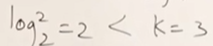 log₂² = 2 < k = 3